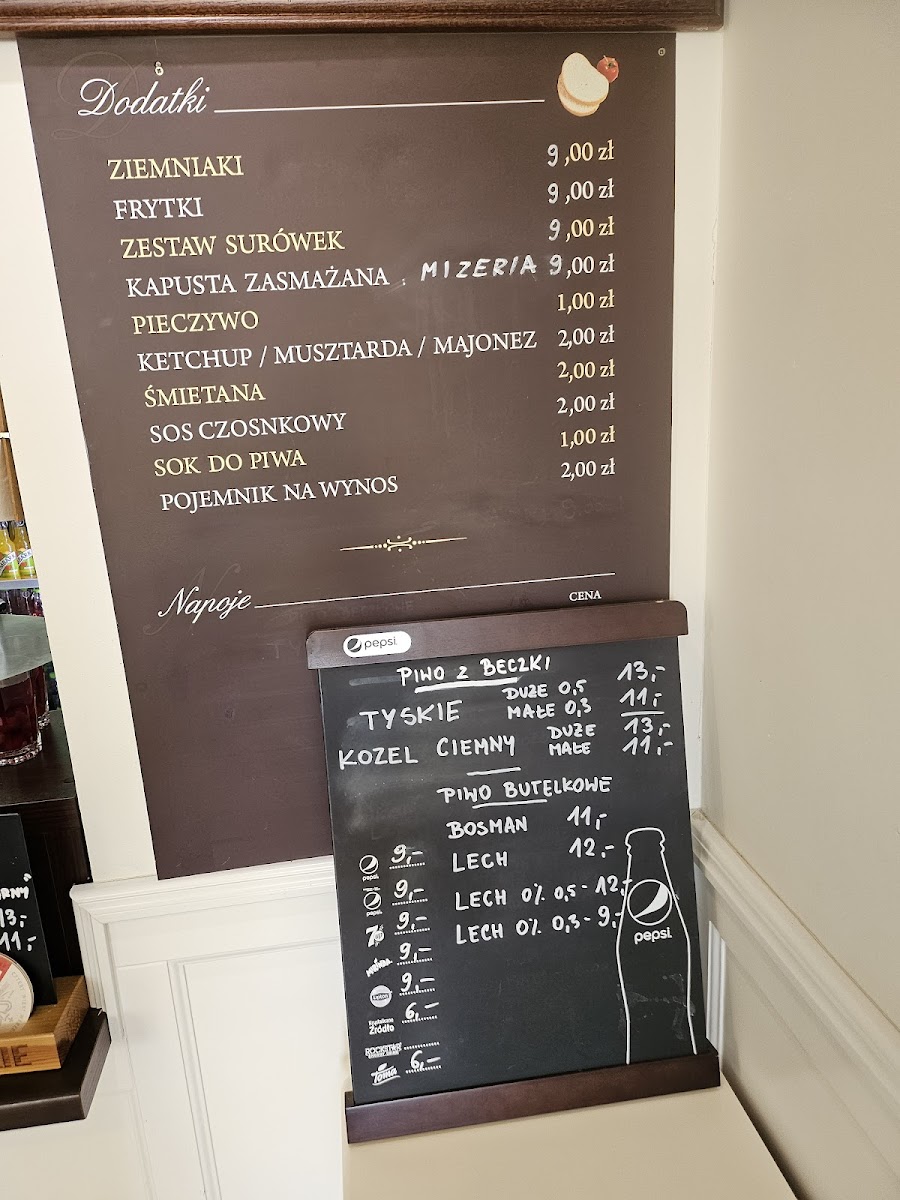 Dodatki
ZIEMNIAKI 9,00 zł
FRYTKI 9,00 zł
ZESTAW SURÓWEK 9,00 zł
KAPUSTA ZASMAŻANA . MIZERIA 9,00 zł
PIECZYWO 1,00 zł
KETCHUP / MUSZTARDA / MAJONEZ 2,00 zł
ŚMIETANA 2,00 zł
SOS CZOSNKOWY 2,00 zł
SOK DO PIWA 1,00 zł
POJEMNIK NA WYNOS 2,00 zł
Napoje CENA
pepsi
PIWO Z BECZKI
TYSKIE DUŻE 0,5 13,-
MAŁE 0,3 11,-
KOZEL CIEMNY DUŻE 13,-
MAŁE 11,-
PIWO BUTELKOWE
BOSMAN 11,-
LECH 12.-
LECH 0% 0,5 - 12,-
LECH 0% 0,3 - 9,-
pepsi 9,-
pepsi 9,-
7 9,-
Mirinda 9,-
Lipton 9,-
Źródło 6,-
ROCKSTAR
Toma 6,-
pepsi
13,-
11,-